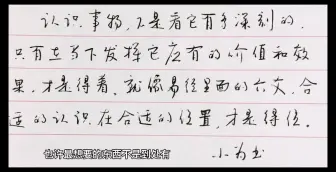 认识事物,不是看它有多深刻的,
只有在当下发挥它应有的价值和效
果,才是得着。就像易经里面的六爻,合
适的认识在合适的位置,才是得位。
也许最想要的东西不是到处有
小为书